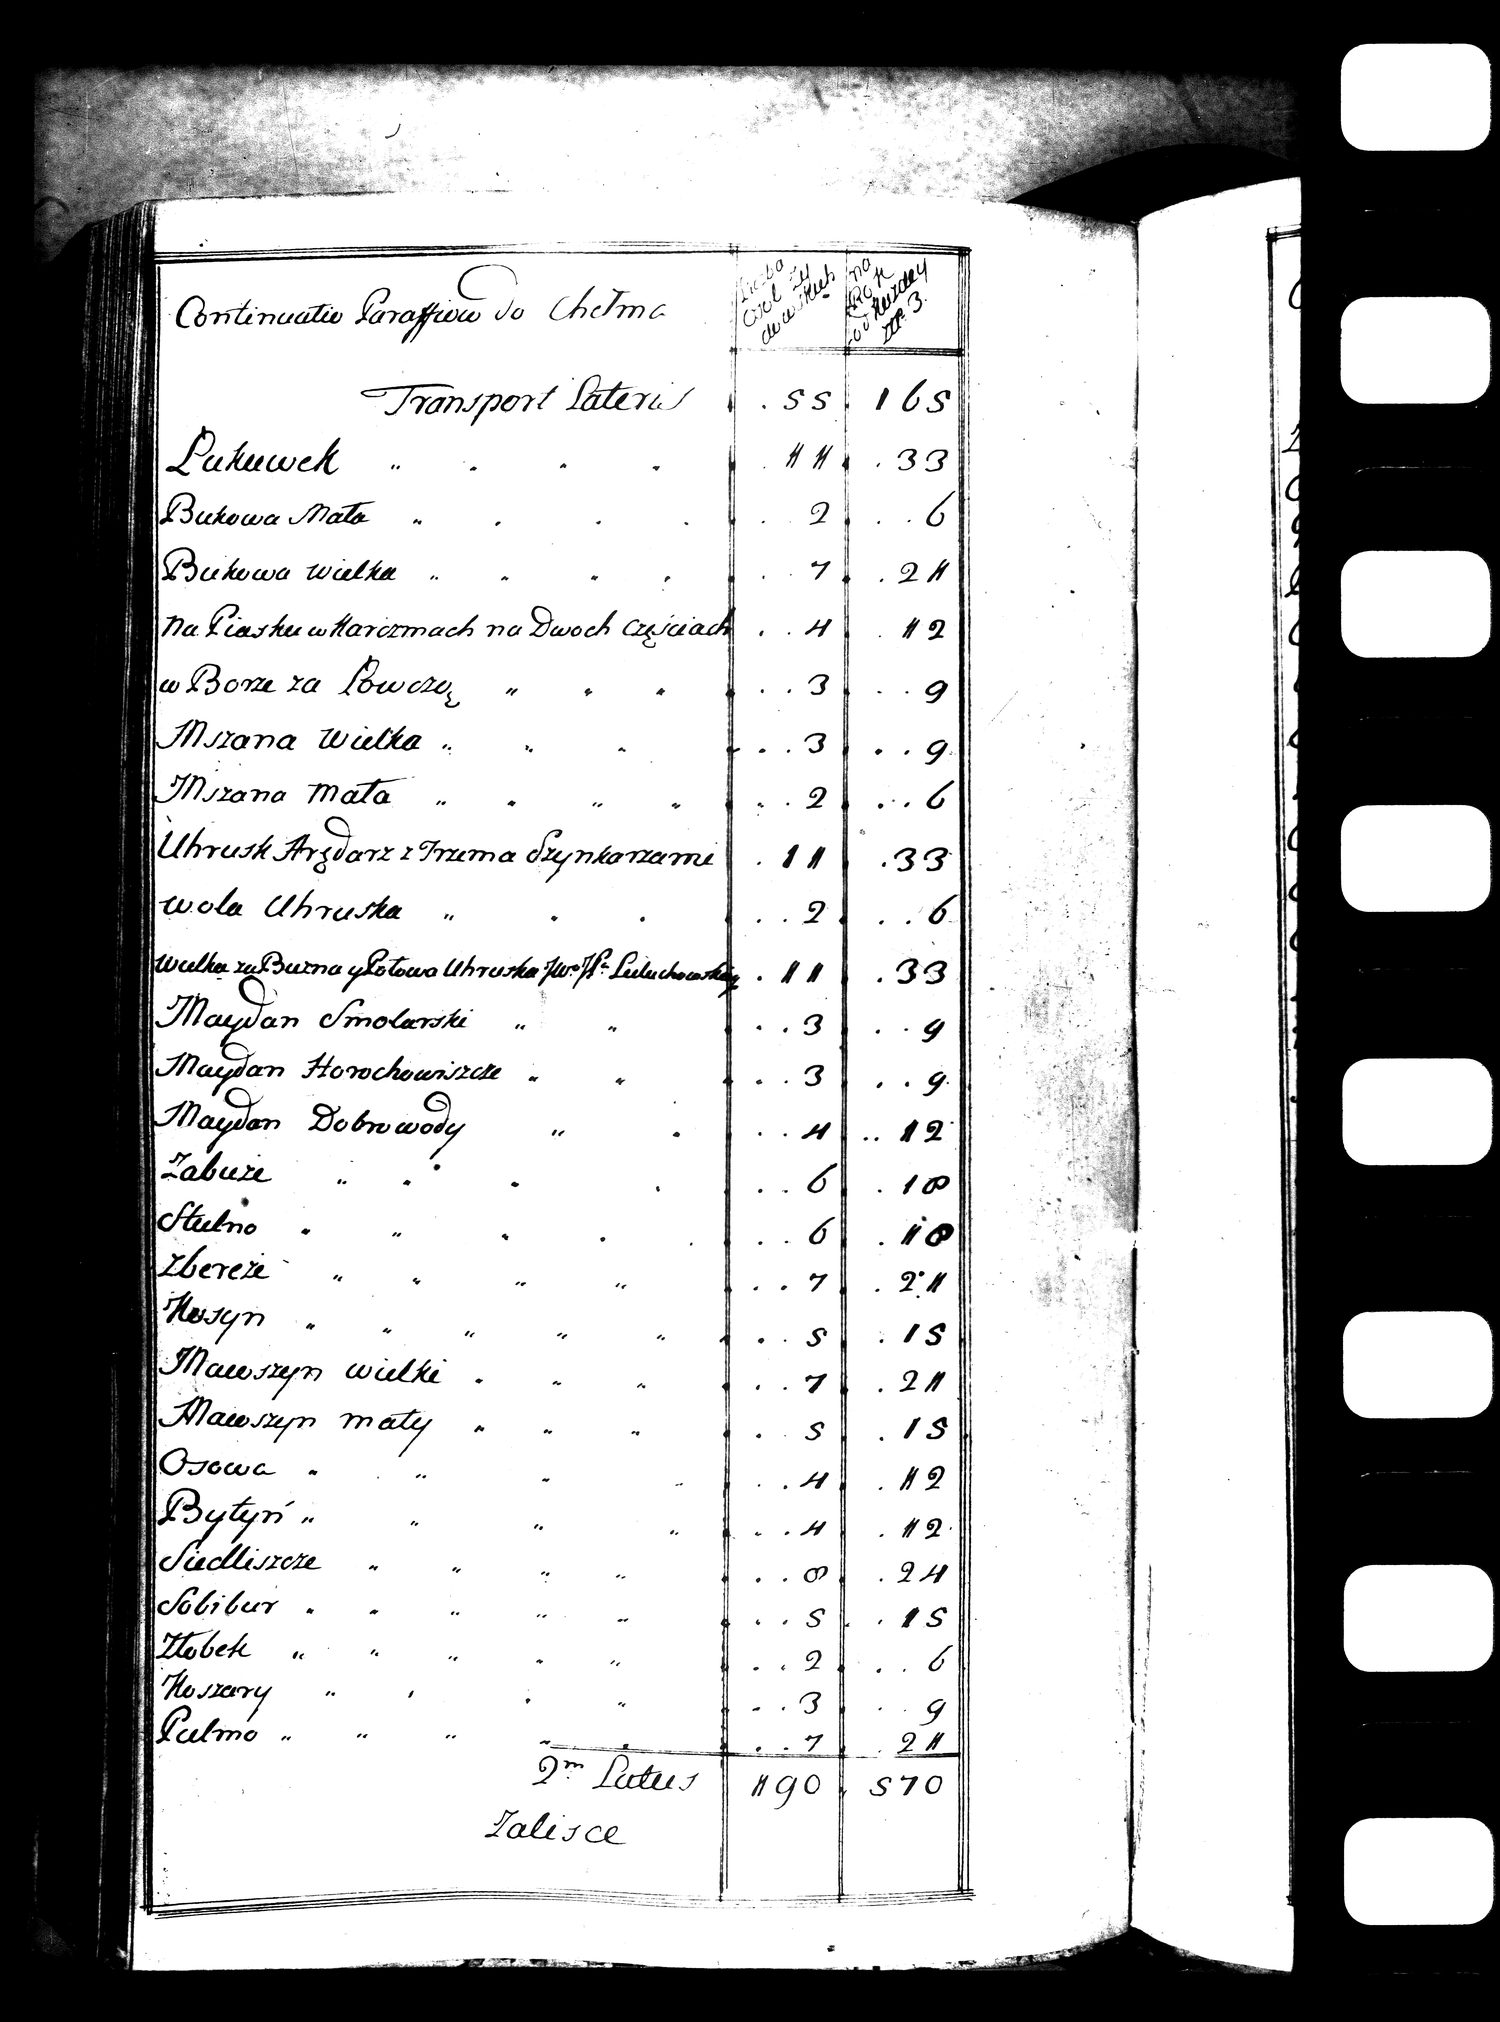 Continuatio Paraffiow do Chełma
Liczba Osob Zydowskich
na Rok od każdey złł. 3.
Transport Lateris 55 165
Łukuwek 11 33
Bukowa Mała 2 6
Bukowa Wielka 7 21
Na Piasku w Karczmach na Dwoch częściach 4 12
w Borze za Łowczą 3 9
Mszana Wielka 3 9
Mszana Mała 2 6
Uhrusk Arędarz z Trzema Szynkarzami 11 33
Wola Uhruska 2 6
Wulka za Buzna y Połowa Uhruska 11 33
Maydan Smolarski 3 9
Maydan Horochowiszcze 3 9
Maydan Dobrowody 4 12
Zabuże 6 18
Stulno 6 18
Zbereże 7 21
Kosyn 5 15
Mawszyn wielki 7 21
Mawszyn mały 5 15
Osowa 4 12
Bytyń 4 12
Siedliszcze 8 24
Sobibur 5 15
Złobek 2 6
Koszary 3 9
Pulmo 7 21
2m Latus 190 570
Zalisce